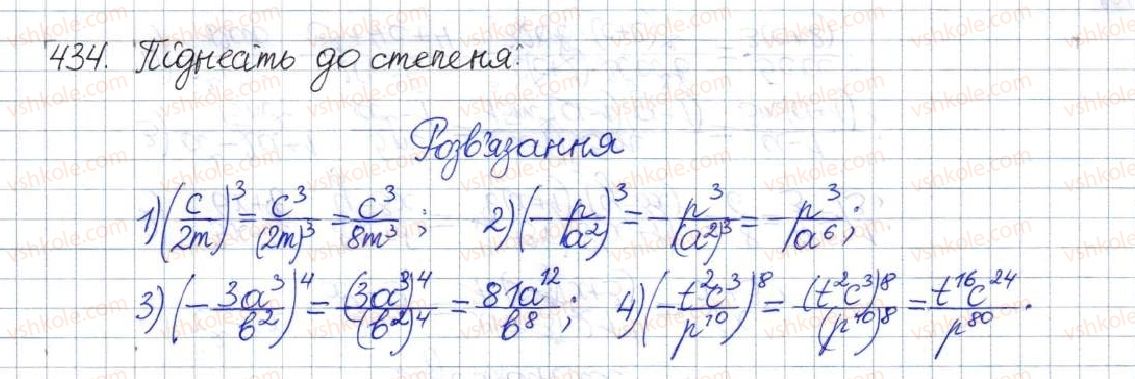 434. Піднесіть до степеня:
Розв'язання
1) (c/2m)³ = c³/(2m)³ = c³/8m³ ; 2) (-p/a²)³ = -p³/(a²)³ = -p³/a⁶ ;
3) (-3a³/b²)⁴ = (3a³)⁴/(b²)⁴ = 81a¹²/b⁸ ; 4) (-t²c³/p¹⁰)⁸ = (t²c³)⁸/(p¹⁰)⁸ = t¹⁶c²⁴/p⁸⁰ .
vshkole.com